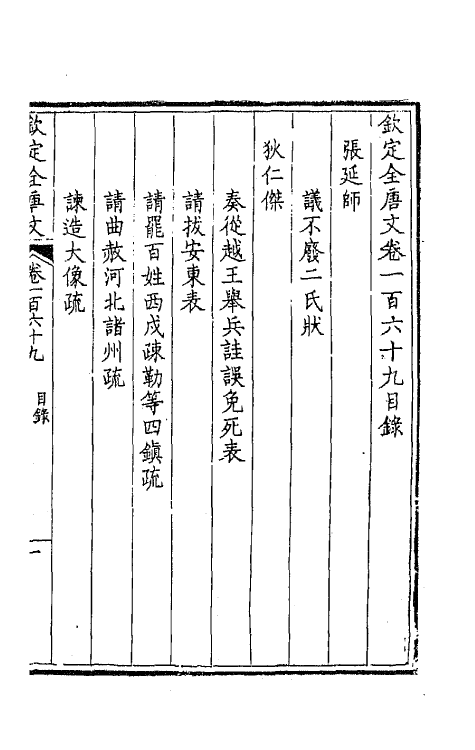 欽定全唐文卷一百六十九目錄
張延師
議不廢二氏狀
狄仁傑
奏從越王舉兵詿誤免死表
請拔安東表
請罷百姓西戍疎勒等四鎮疏
請曲赦河北諸州疏
諫造大像疏
欽定全唐文 卷一百六十九 目錄 一